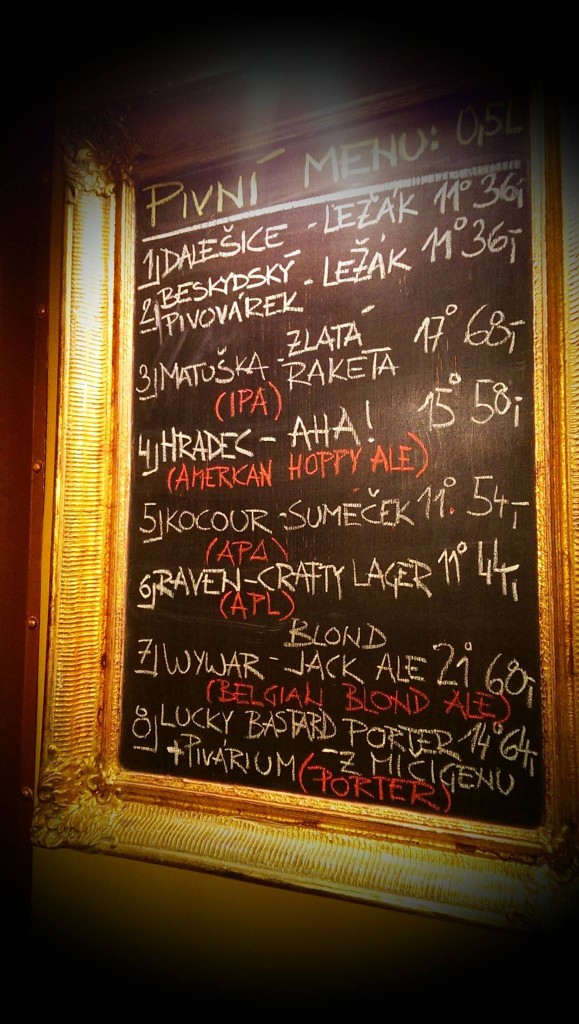 PIVNÍ MENU: 0,5L
1) DALEŠICE - LEŽÁK 11° 36,-
2) BESKYDSKÝ PIVOVÁREK - LEŽÁK 11° 36,-
3) MATUŠKA - ZLATÁ RAKETA 17° 68,-
(IPA)
4) HRADEC - AHA! 15° 58,-
(AMERICAN HOPPY ALE)
5) KOCOUR - SUMEČEK 11° 54,-
(APA)
6) RAVEN - CRAFTY LAGER 11° 44,-
(APL)
BLOND
7) WYWAR - JACK ALE 21° 68,-
(BELGIAN BLOND ALE)
8) LUCKY BASTARD PORTER 14° 64,-
+ PIVARIUM - Z MICIGENU
(PORTER)